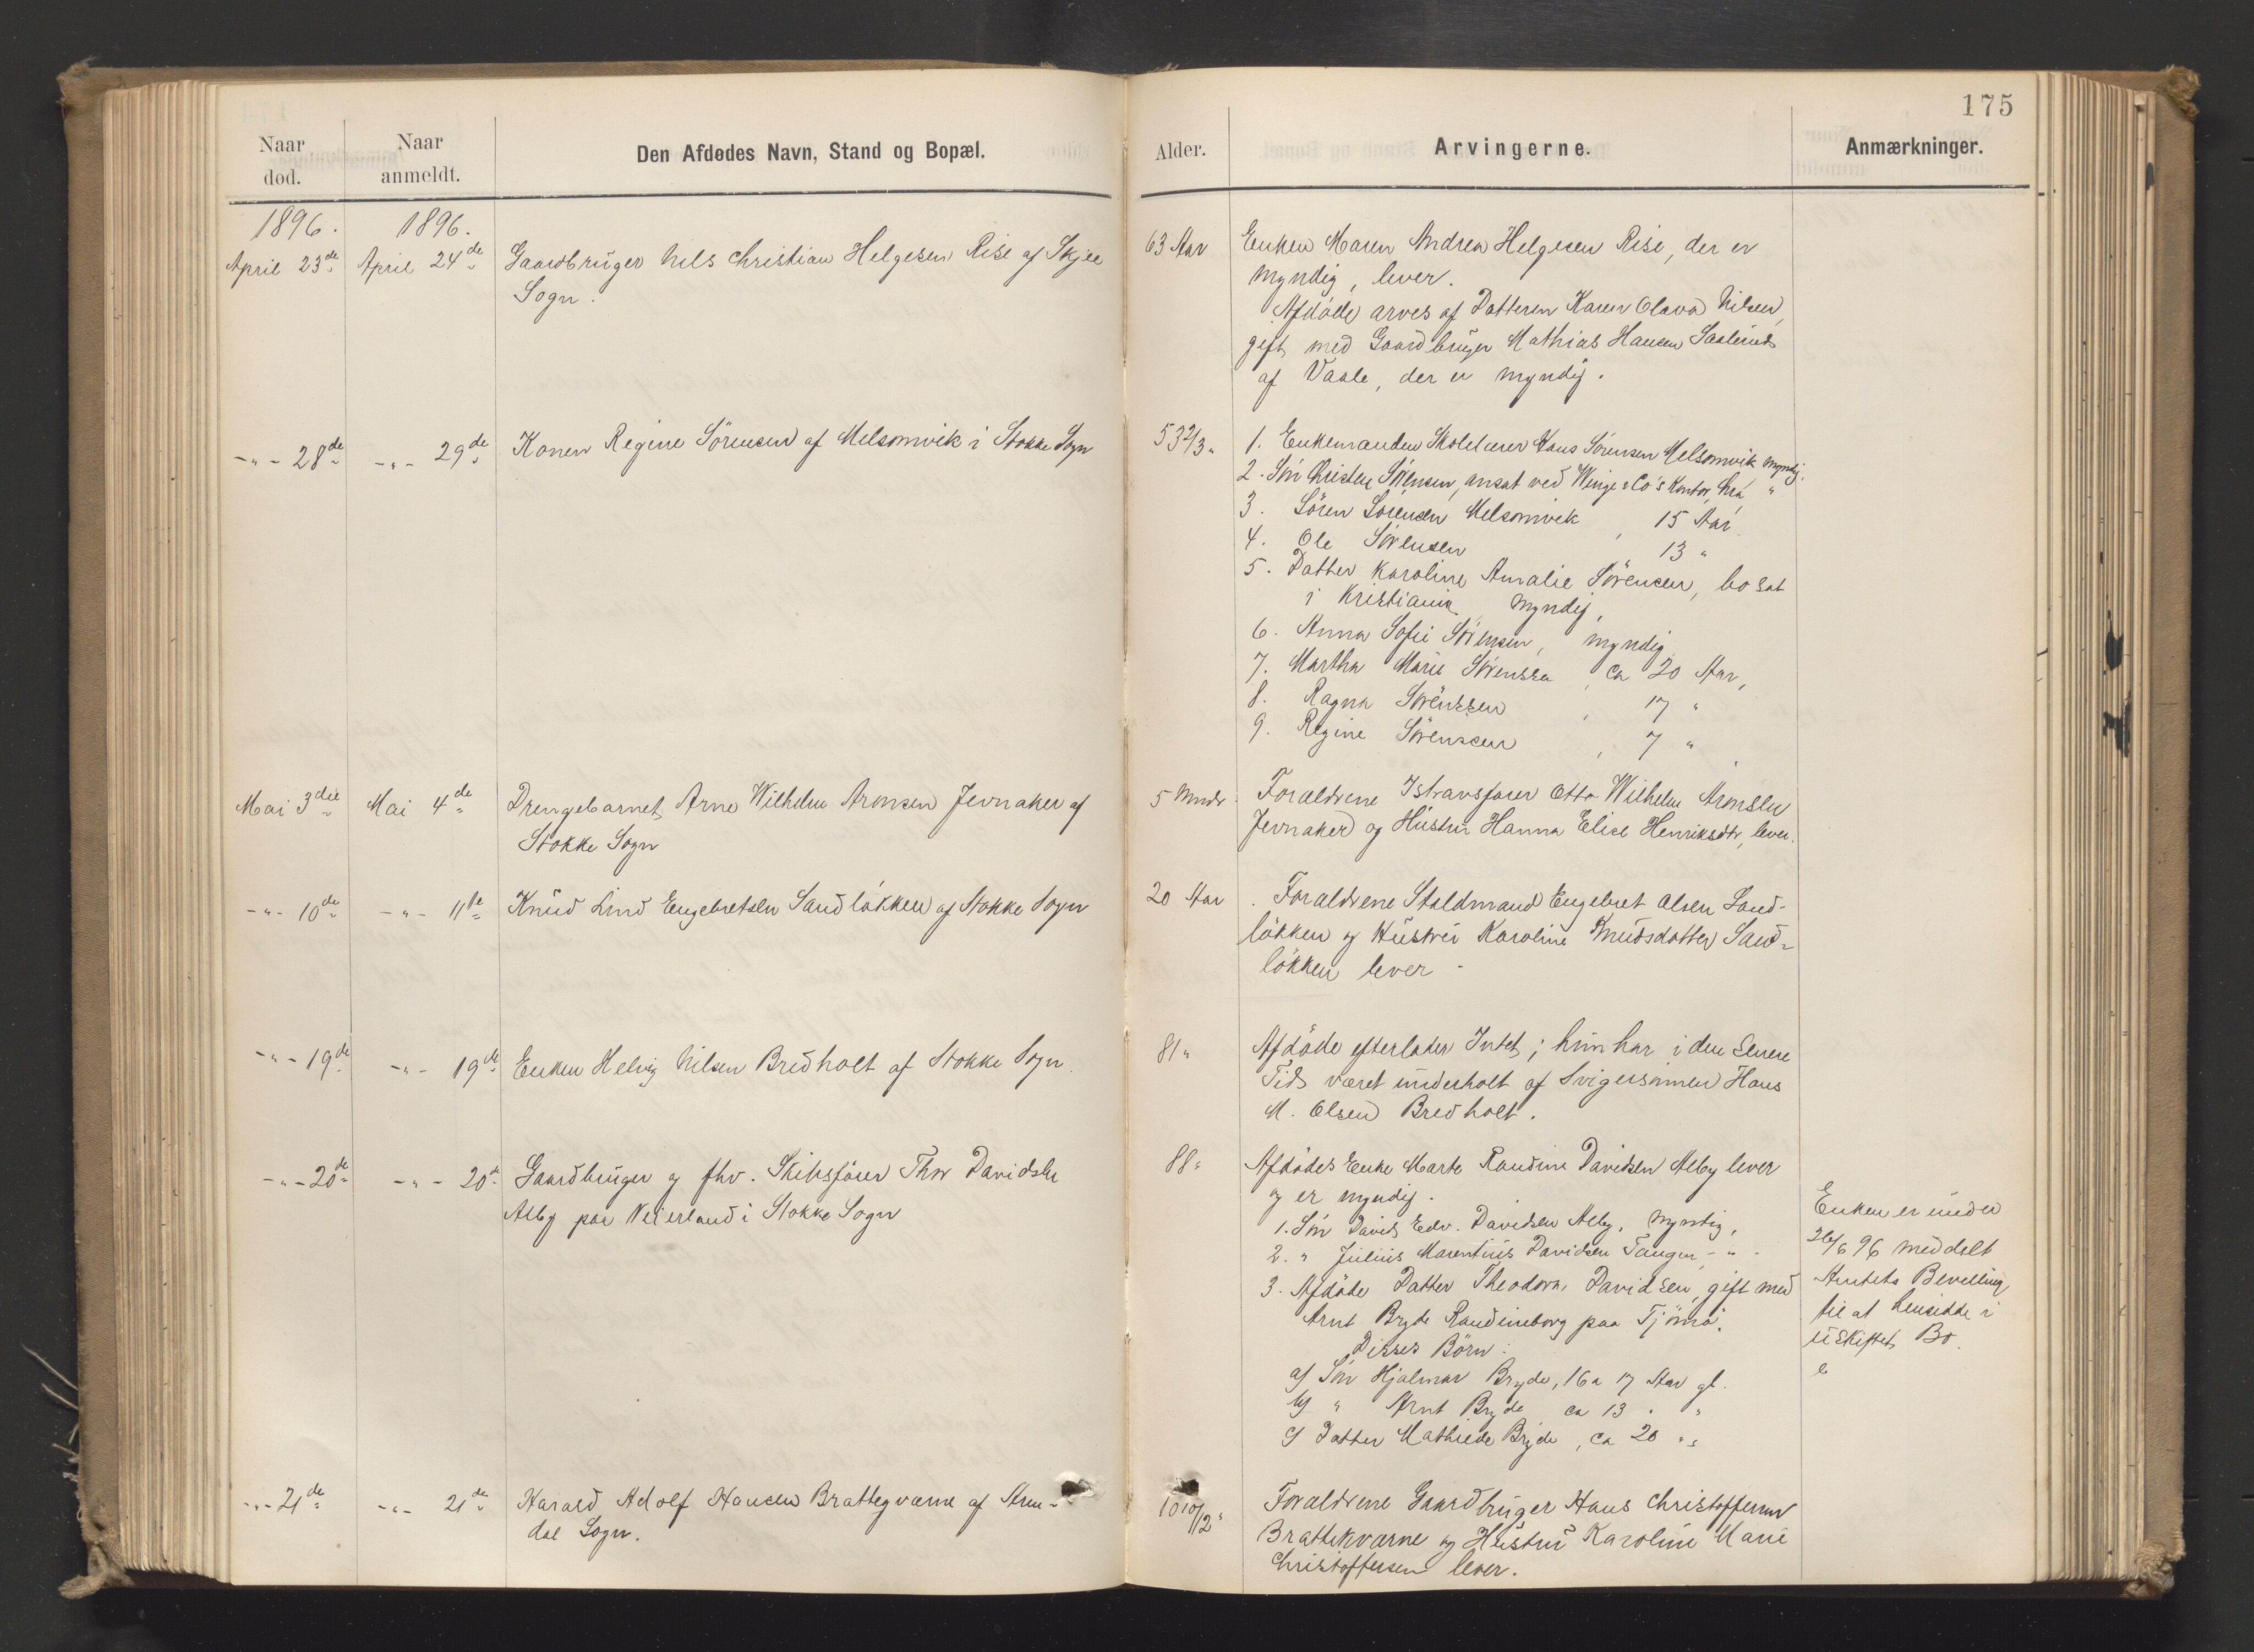 175
Naar død.
Naar anmeldt.
Den Afdødes Navn, Stand og Bopæl.
Alder.
Arvingerne.
Anmærkninger.
1896.
1896.
April 23de
April 24de
Gaardbruger Nils Christian Helgesen Rise af Skjee
Sogn.
63 Aar
Enken Maren Andrea Helgesen Rise, der er
myndig, lever.
Afdøde arves af Datteren Karen Olava Nilsen,
gift med Gaardbruger Mathias Hansen
af Vaale, der er myndig.
-"- 28de
-"- 29de
Konen Regine Sörensen af Melsomvik i Stokke Sogn
53 2/3 "
1. Enkemanden Skolelærer Hans Sörensen Melsomvik, myndig.
2. Sön Christen Sörensen, ansat ved Winge & Co's Kontor, Kra, "
3. Sören Sörensen Melsomvik, 15 Aar
4. Ole Sörensen 13 "
5. Datter Karoline Amalie Sörensen, bosat
i Kristiania, myndig,
6. Anna Sofie Sörensen, myndig
7. Martha Marie Sörensen, ca 20 Aar,
8. Ragna Sörenssen, 17 "
9. Regine Sörensen, 7 "
Mai 3die
Mai 4de
Drengebarnet Arne Wilhelm Aronsen Jevnaker af
Stokke Sogn
5 Mndr.
Forældrene Istransfører Otto Wilhelm Aronsen
Jevnaker og Hustru Hanna Elise Henriksdtr, lever.
-"- 10de
-"- 11te
Knud Lind Engebretsen Sandløkken af Stokke Sogn
20 Aar
Forældrene Staldmand Engebret Olsen Sand-
løkken og Hustru Karoline Knudsdatter Sand-
løkken lever
-"- 19de
-"- 19de
Enken Helvig Nilsen Bredholt af Stokke Sogn.
81 "
Afdøde efterlader Intet; hun har i den senere
Tid været underholt af Svigersønnen Hans
M. Olsen Bredholt.
-"- 20de
-"- 20de
Gaardbruger og fhv. Skibsfører Thor Davidsen
Alby paa Veierland i Stokke Sogn
88 "
Afdødes Enke Marte Randine Davidsen Alby lever
og er myndig.
1. Sön David Edv. Davidsen Alby, myndig,
2. " Julius Marentius Davidsen Tangen, - " -
3. Afdøde Datter Theodora Davidsen, gift med
Arnt Bryde Randineborg paa Tjømø.
Disses Börn:
a) Sön Hjalmar Bryde, 16 a 17 Aar gl.
b) " Arnt Bryde ca 13 " "
c) Datter Mathilde Bryde, ca 20 " "
Enken er under
26/6 96 meddelt
Amtets Bevilling
til at hensidde i
uskiftet Bo.
-"- 21de
-"- 21de
Harald Adolf Hansen Brattegværne af Arn-
dal Sogn.
10 10/12 "
Forældrene Gaardbruger Hans Christoffersen
Brattekværne og Hustru Karoline Marie
Christoffersen lever.